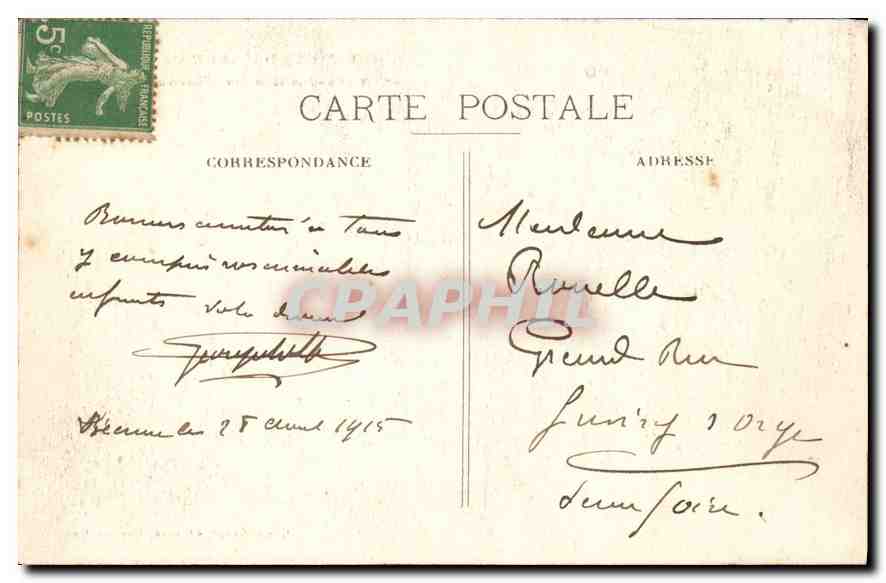 5c
REPUBLIQUE FRANÇAISE
POSTES
CARTE POSTALE
CORRESPONDANCE
Bonnes amitiés à tous
y compris vos aimables
enfants votre
le 28 1915
ADRESSE
Madame
Rouelle
Grand Rue
Juvisy s Orge
Seine Loire.
CPARHIL